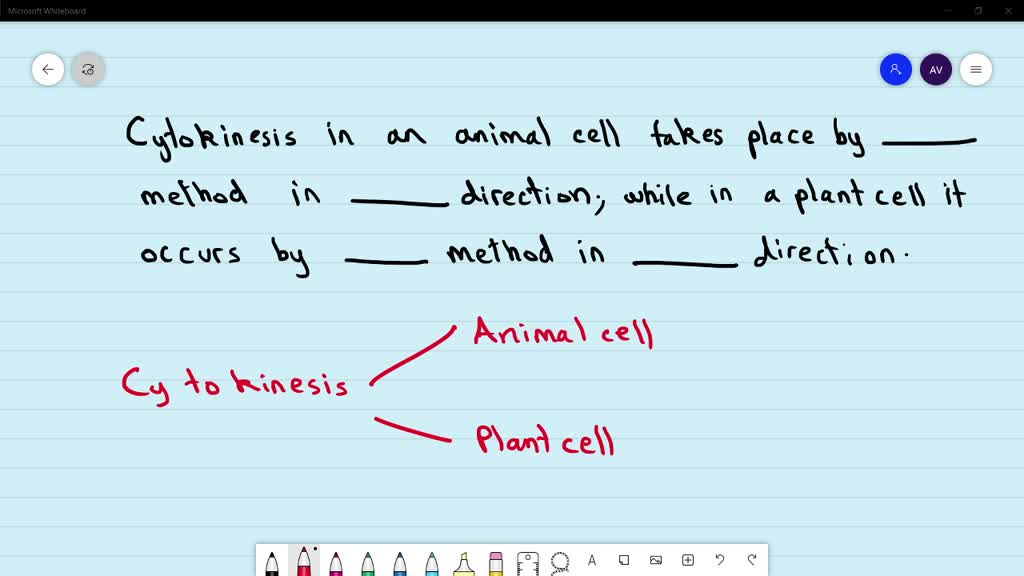 Microsoft Whiteboard
AV
Cytokinesis in an animal cell takes place by ______
method in ______ direction; while in a plant cell it
occurs by ______ method in ______ direction.
Animal cell
Cytokinesis
Plant cell
A